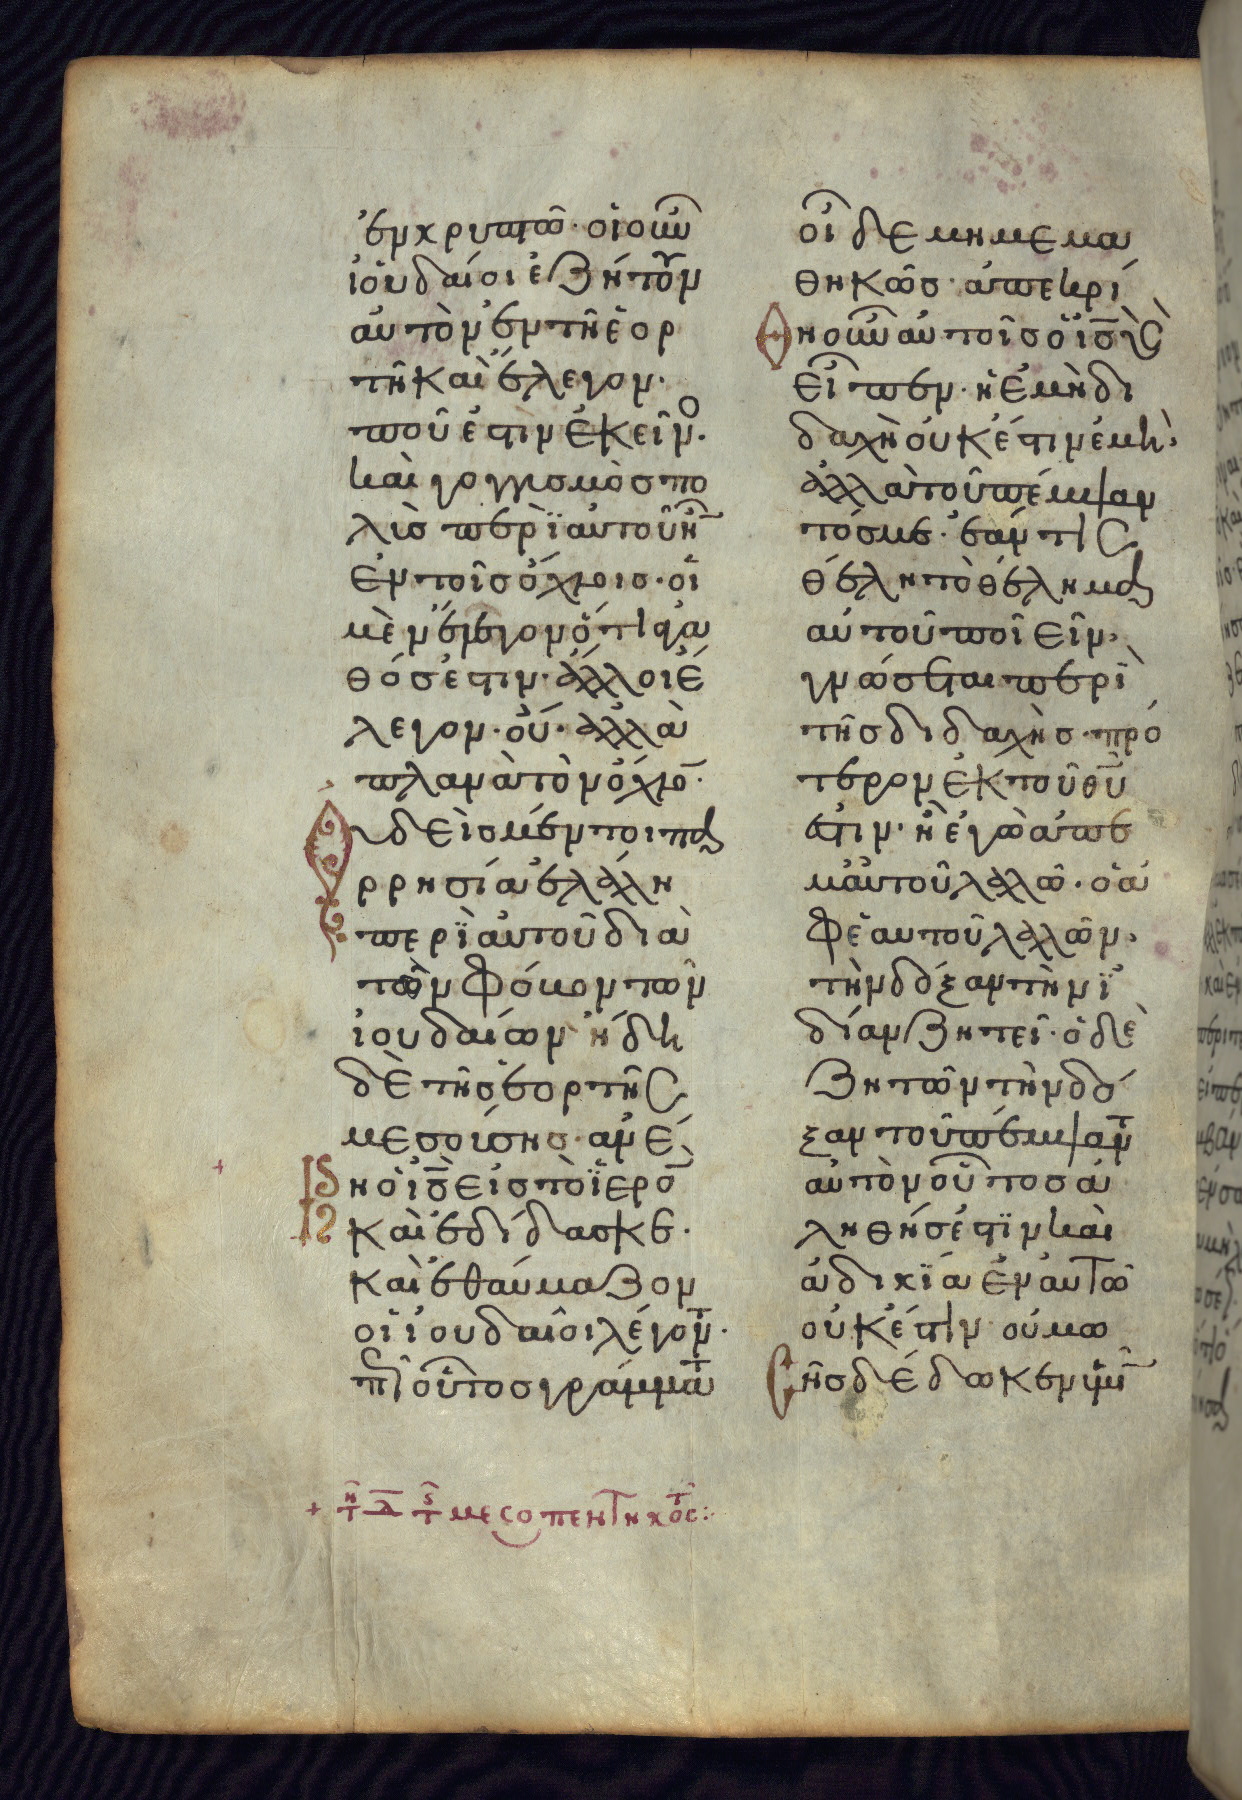 ἐν κρυπτῶ· οἱ οὖν
ἰουδαῖοι ἐζήτουν
αὐτὸν ἐν τῆ ἑορ
τῆ καὶ ἔλεγον·
ποῦ ἐστιν ἐκεῖνο·
καὶ γογγυσμὸσ πο
λὺσ περὶ αὐτοῦ ἦν
ἐν τοῖσ ὄχλοισ· οἱ
μὲν ἔλεγον ὅτι ἀγα
θόσ ἐστιν· ἄλλοι ἔ
λεγον· οὔ· ἀλλὰ
πλανὰ τὸν ὄχλο̅·
Οὐδεὶσ μέντοι πα
ρρησία ἐλάλη
περὶ αὐτοῦ διὰ
τὸν φόβον τῶν
ἰουδαίων ἤδη
δὲ τῆσ ἑορτῆσ
μεσούσησ· ἀνέ
βη ὁ ι̅σ̅ εἰσ τὸ ἱερο̅
καὶ ἐδίδασκε·
καὶ ἐθαύμαζον
οἱ ἰουδαῖοι λέγοντ·
πῶ οὗτοσ γράμματ
οἶδε μὴ μεμα
θηκῶσ· ἀπεκρί
θη οὖν αὐτοῖσ ὁ ι̅σ̅ κ
εἶπεν· ἡ ἐμὴ δι
δαχὴ οὐκ ἔστιν ἐμὴ·
ἀλλὰ τοῦ πέμψαν
τόσ με· ἐάν τισ
θέλη τὸ θέλημα
αὐτοῦ ποιεῖν·
γνώσεται περὶ
τῆσ διδαχὴσ· πρό
τερον ἐκ τοῦ θ̅υ̅
ἐστιν· ἢ ἐγὼ ἀπ ἐ
μαυτοῦ λαλῶ· ὁ ἀ
φ ἑαυτοῦ λαλῶν·
τὴν δόξαν τὴν ἰ
δίαν ζητεῖ· ὁ δὲ
ζητῶν τὴν δό
ξαν τοῦ πέμψαντ
αὐτὸν οὗτοσ ἀ
ληθήσ ἐστιν καὶ
ἀδικία ἐν αὐτῶ
οὐκ ἔστιν οὐ μω
σῆσ δέδωκεν ὑμῖ
+ τη δ τσ μεσοπεντηκοστ: